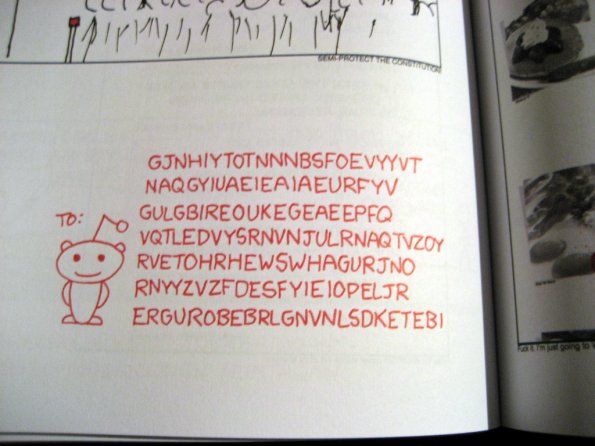 SEMI-PROTECT THE CONSTITUTION
TO:
GJNHIYTOTNNNBSFOEVYYVT
NAQGYIUAEIEAIAEURFYV
GULGBIREOUKEGEAEEPFQ
VQTLEDVYSRNVNJULRNAQTVZOY
RVETOHRHEWSWHAGURJNO
RNYYZVZFDESFYIEIOPELJR
ERGUROBEBRLGNVNLSDKETEBI